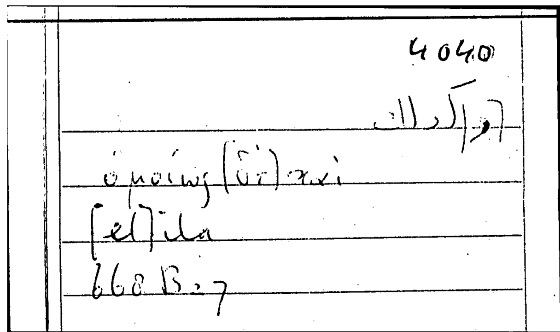 4040
[و]كذلك
ὁμοίως (δὲ) καὶ
[et] ita
668 B. 7